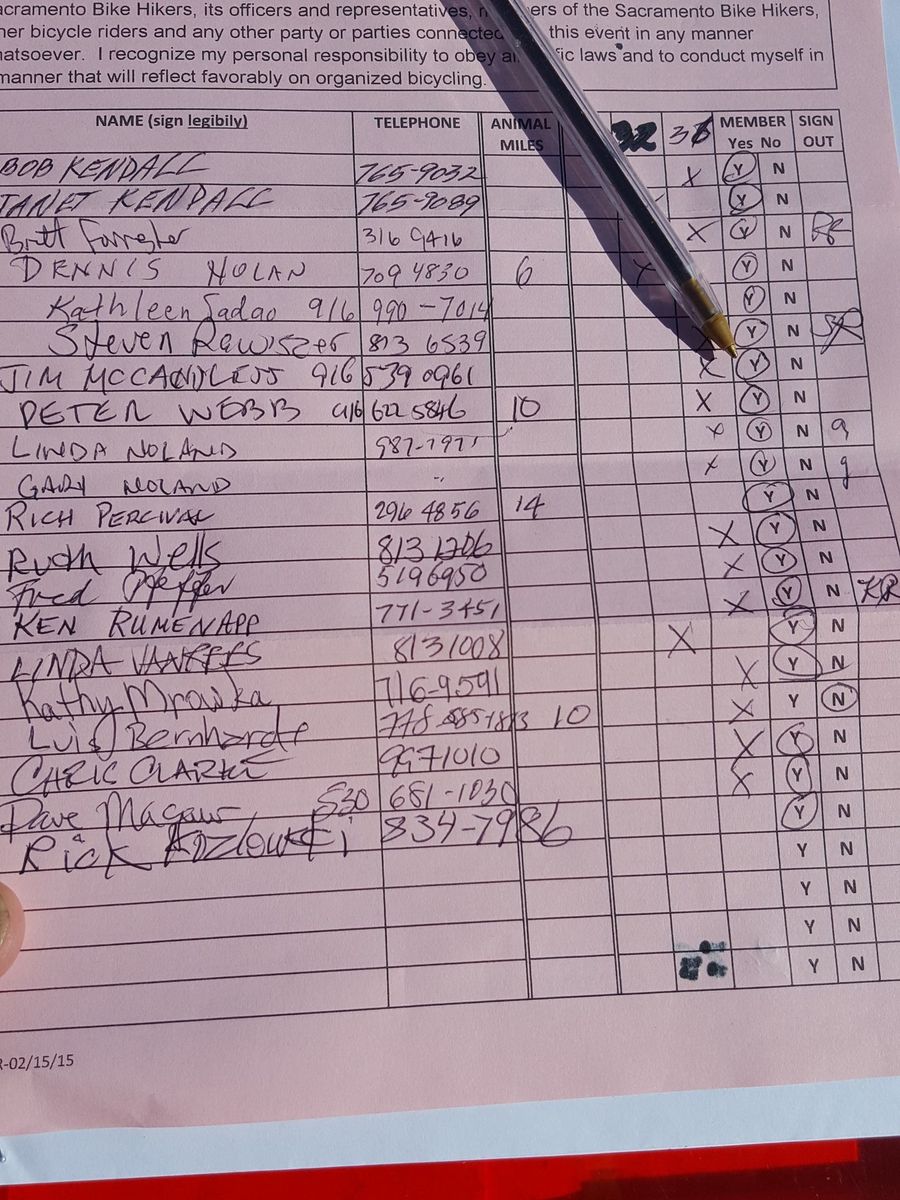 acramento Bike Hikers, its officers and representatives, ers of the Sacramento Bike Hikers,
her bicycle riders and any other party or parties connected this event in any manner
hatsoever. I recognize my personal responsibility to obey ic laws and to conduct myself in
manner that will reflect favorably on organized bicycling.
NAME (sign legibily) TELEPHONE ANIMAL MILES 32 MEMBER Yes No SIGN OUT
BOB KENDALL 765-9032 X Y N
JANET KENDALL 765-9089 Y N
Brett Forrester 316 9416 X Y N
DENNIS NOLAN 709 4830 6 X Y N
Kathleen Sadao 916 990-7014 Y N
Steven Rawiszer 813 6539 X Y N SR
JIM MCCANDLESS 916 539 0961 X Y N
PETER WEBB 916 622 5846 10 X Y N
LINDA NOLAND 987-7971 X Y N g
GARY NOLAND " X Y N g
RICH PERCIVAL 296 4856 14 Y N
Ruth Wells 813 1206 X Y N
Fred Pfeffer 5196950 X Y N
KEN RUMENAPP 771-3451 X Y N KR
LINDA VANKEES 8131008 X Y N
Kathy Mrowka 716-9591 X Y N
Luis Bernhardt 778- 10 X Y N
CHRIC CLARKE 9971010 X Y N
Dave Magaw 530 681-1030 X Y N
Rick Kozlowski 834-7986 Y N
Y N
Y N
Y N
Y N
R-02/15/15